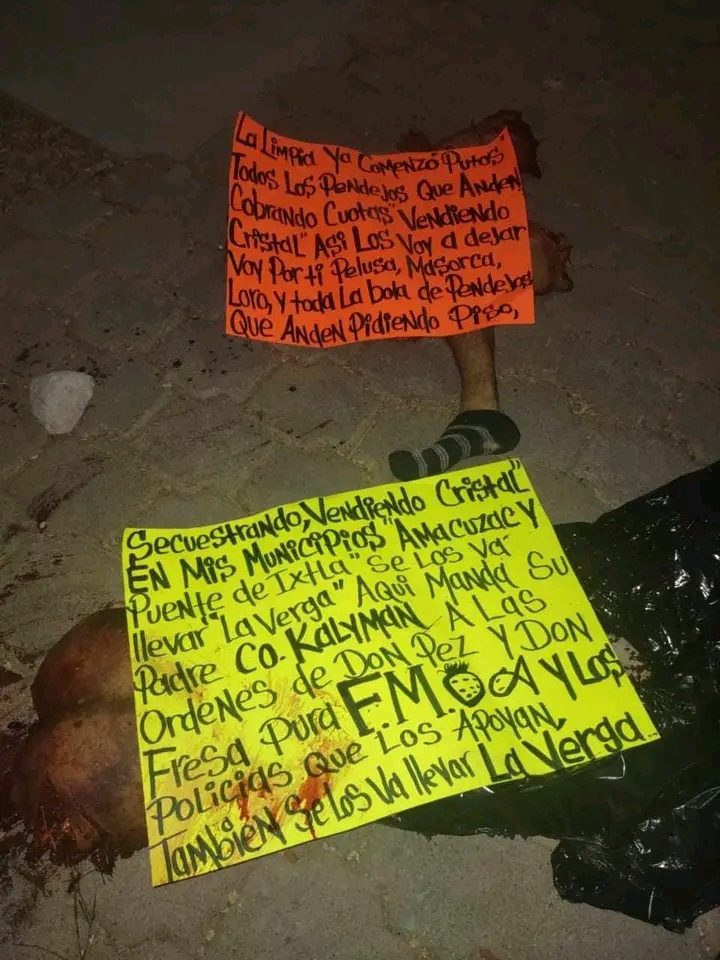 La Limpia Ya Comenzó Putos
Todos Los Pendejos Que Anden
Cobrando Cuotas" Vendiendo
Cristal" Asi Los Voy a dejar
Voy Por ti Pelusa, Masorca,
Loro, y toda La bola de Pendejos
Que Anden Pidiendo Piso,
Secuestrando, Vendiendo Cristal"
En Mis Municipios "Amacuzac y
Puente de Ixtla" Se Los Va
llevar "La Verga" Aqui Manda Su
Padre Co. Kalyman A Las
Ordenes de Don Pez y Don
Fresa Pura F.M. y Los
Policias Que Los Apoyan,
También Se Los Va llevar La Verga..